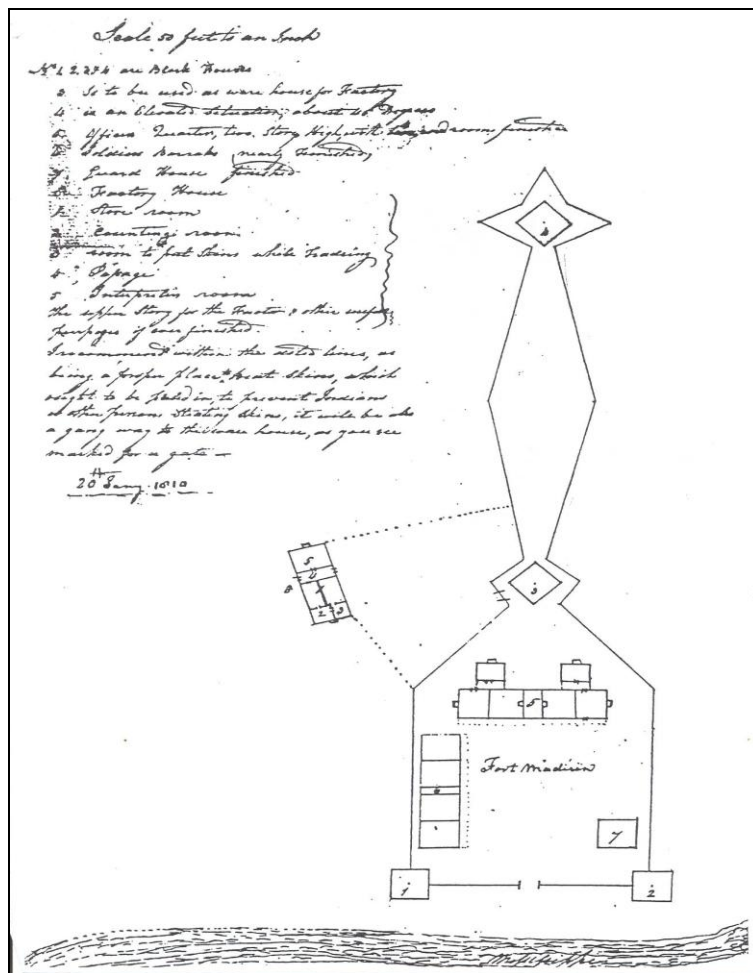 Scale 50 feet to an Inch
No 1, 2, 3 & 4 are Block Houses
3 Is to be used as ware house for Factory
4 is an Elevated Situation, about 45 Degrees
5 Officers Quarter, two Story High, with room finished
6 Soldiers Barraks, nearly Finnished,
7 Guard House finished
8 Factory House
1 Store room
2 Counting room
3 room to put Skins while Tradeing
4 Passage
5 Interpreters room
The upper Story for the Factor & other usefull
purposes if ever finished.
I recommend within the doted lines, as
being a proper place to beat Skins, which
ought to be picked in, to prevent Indians
or other persons Stealing Skins, it will be also
a gang way to the ware house, as you see
marked for a gate —
20th Jany. 1810
4
5
4
8
1
2
3
3
5
Fort Madison
6
7
1
2
Mississippi